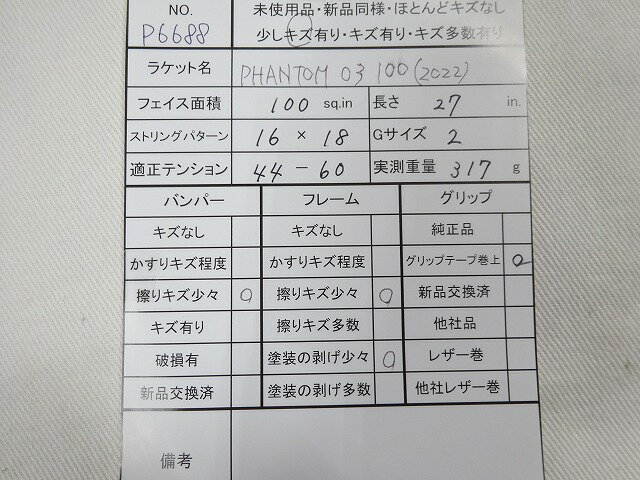 NO.
P6688
未使用品・新品同様・ほとんどキズなし
少しキズ有り・キズ有り・キズ多数有り
ラケット名 PHANTOM 03 100 (2022)
フェイス面積 100 sq.in 長さ 27 in.
ストリングパターン 16 × 18 Gサイズ 2
適正テンション 44 - 60 実測重量 317 g
バンパー フレーム グリップ
キズなし キズなし 純正品
かすりキズ程度 かすりキズ程度 グリップテープ巻上 ○
擦りキズ少々 ○ 擦りキズ少々 ○ 新品交換済
キズ有り 擦りキズ多数 他社品
破損有 塗装の剥げ少々 ○ レザー巻
新品交換済 塗装の剥げ多数 他社レザー巻
備考